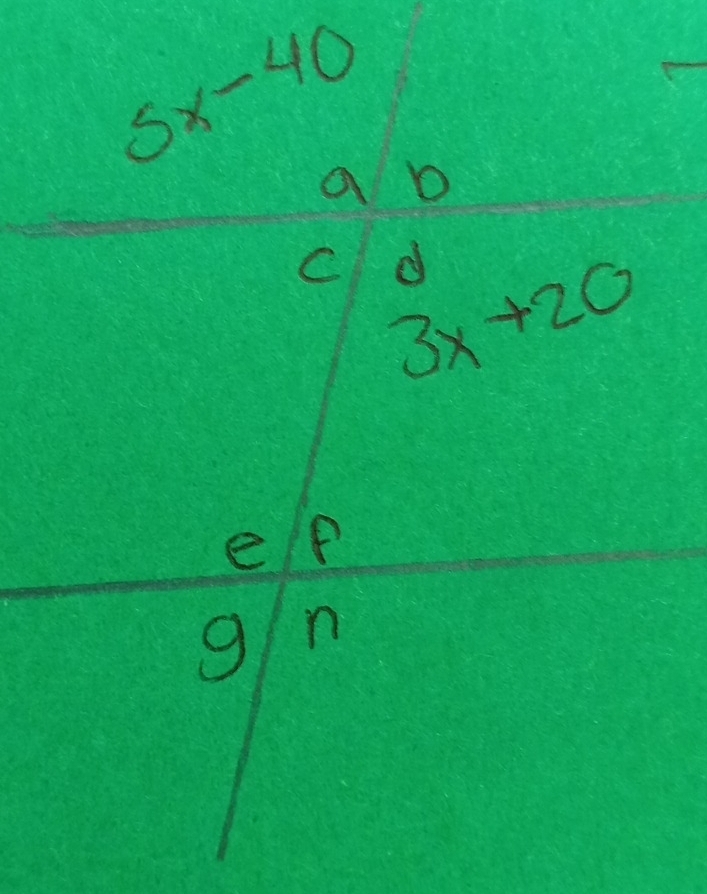 5x-40
a b
c d
3x+20
e f
g n